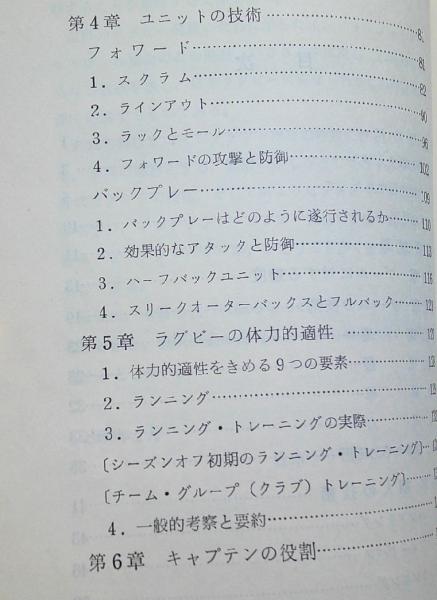 第4章 ユニットの技術
フォワード 81
1．スクラム 82
2．ラインアウト 90
3．ラックとモール 96
4．フォワードの攻撃と防御 102
バックプレー 109
1．バックプレーはどのように遂行されるか 110
2．効果的なアタックと防御 113
3．ハーフバックユニット 116
4．スリークオーターバックスとフルバック 121
第5章 ラグビーの体力的適性
1．体力的適性をきめる9つの要素
2．ランニング
3．ランニング・トレーニングの実際
〔シーズンオフ初期のランニング・トレーニング〕
〔チーム・グループ（クラブ）トレーニング〕
4．一般的考察と要約
第6章 キャプテンの役割